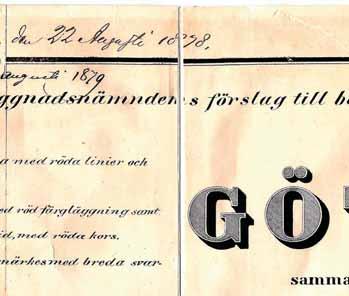 den 22 Augusti 1878.
augusti 1879
ggnadsnämndens förslag till b
a med röda linier och
ed röd färgläggning samt
id, med röda kors.
märkes med breda svar-
GÖT
samma